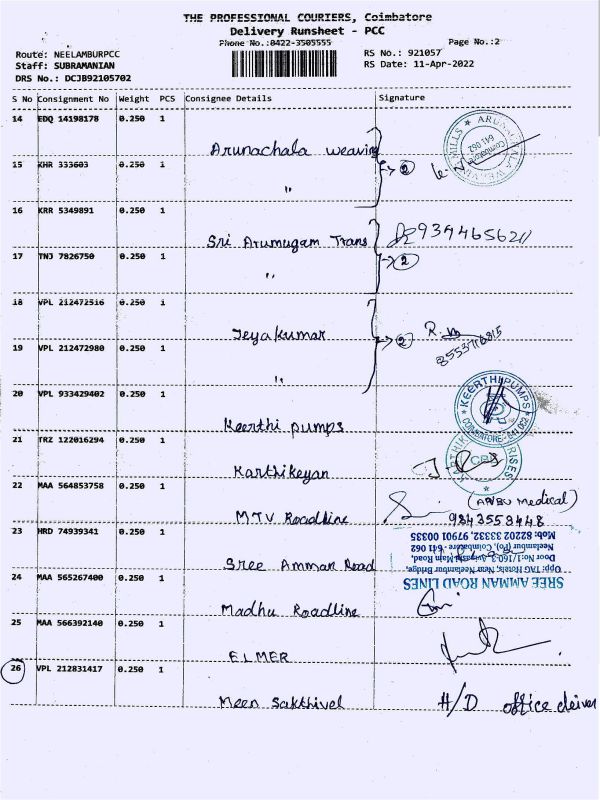 THE PROFESSIONAL COURIERS, Coimbatore
Delivery Runsheet - PCC
Phone No.:0422-3505555
Page No.:2
Route: NEELAMBURPCC
RS No.: 921057
Staff: SUBRAMANIAN
RS Date: 11-Apr-2022
DRS No.: DCJB92105702
S No Consignment No Weight PCS Consignee Details Signature
14 EDQ 14198178 0.250 1
Arunachala weaving
15 KHR 333603 0.250 1
"
2
16 KRR 5349891 0.250 1
Sri Arumugam Trans
17 TNJ 7826750 0.250 1
"
2
18 VPL 212472516 0.250 1
Jeyakumar
2
19 VPL 212472980 0.250 1
"
20 VPL 933429402 0.250 1
KEERTHI PUMPS
COIMBATORE - 641 062
Keerthi pumps
21 TRZ 122016294 0.250 1
CBE
Karthikeyan
22 MAA 564853758 0.250 1
MTV Roadline
9843558448
23 HRD 74939341 0.250 1
Sree Amman Road
SREE AMMAN ROAD LINES
Opp: TAG Hotels, Near Neelambur Bridge,
Door No:1/160-3, Avinashi Main Road,
Neelambur (Po), Coimbatore - 641 062
Mob: 82202 33332, 97901 00335
24 MAA 565267400 0.250 1
Madhu Roadline
25 MAA 566392140 0.250 1
ELMER
26 VPL 212831417 0.250 1
Meen Sakthivel
H/D office deiver